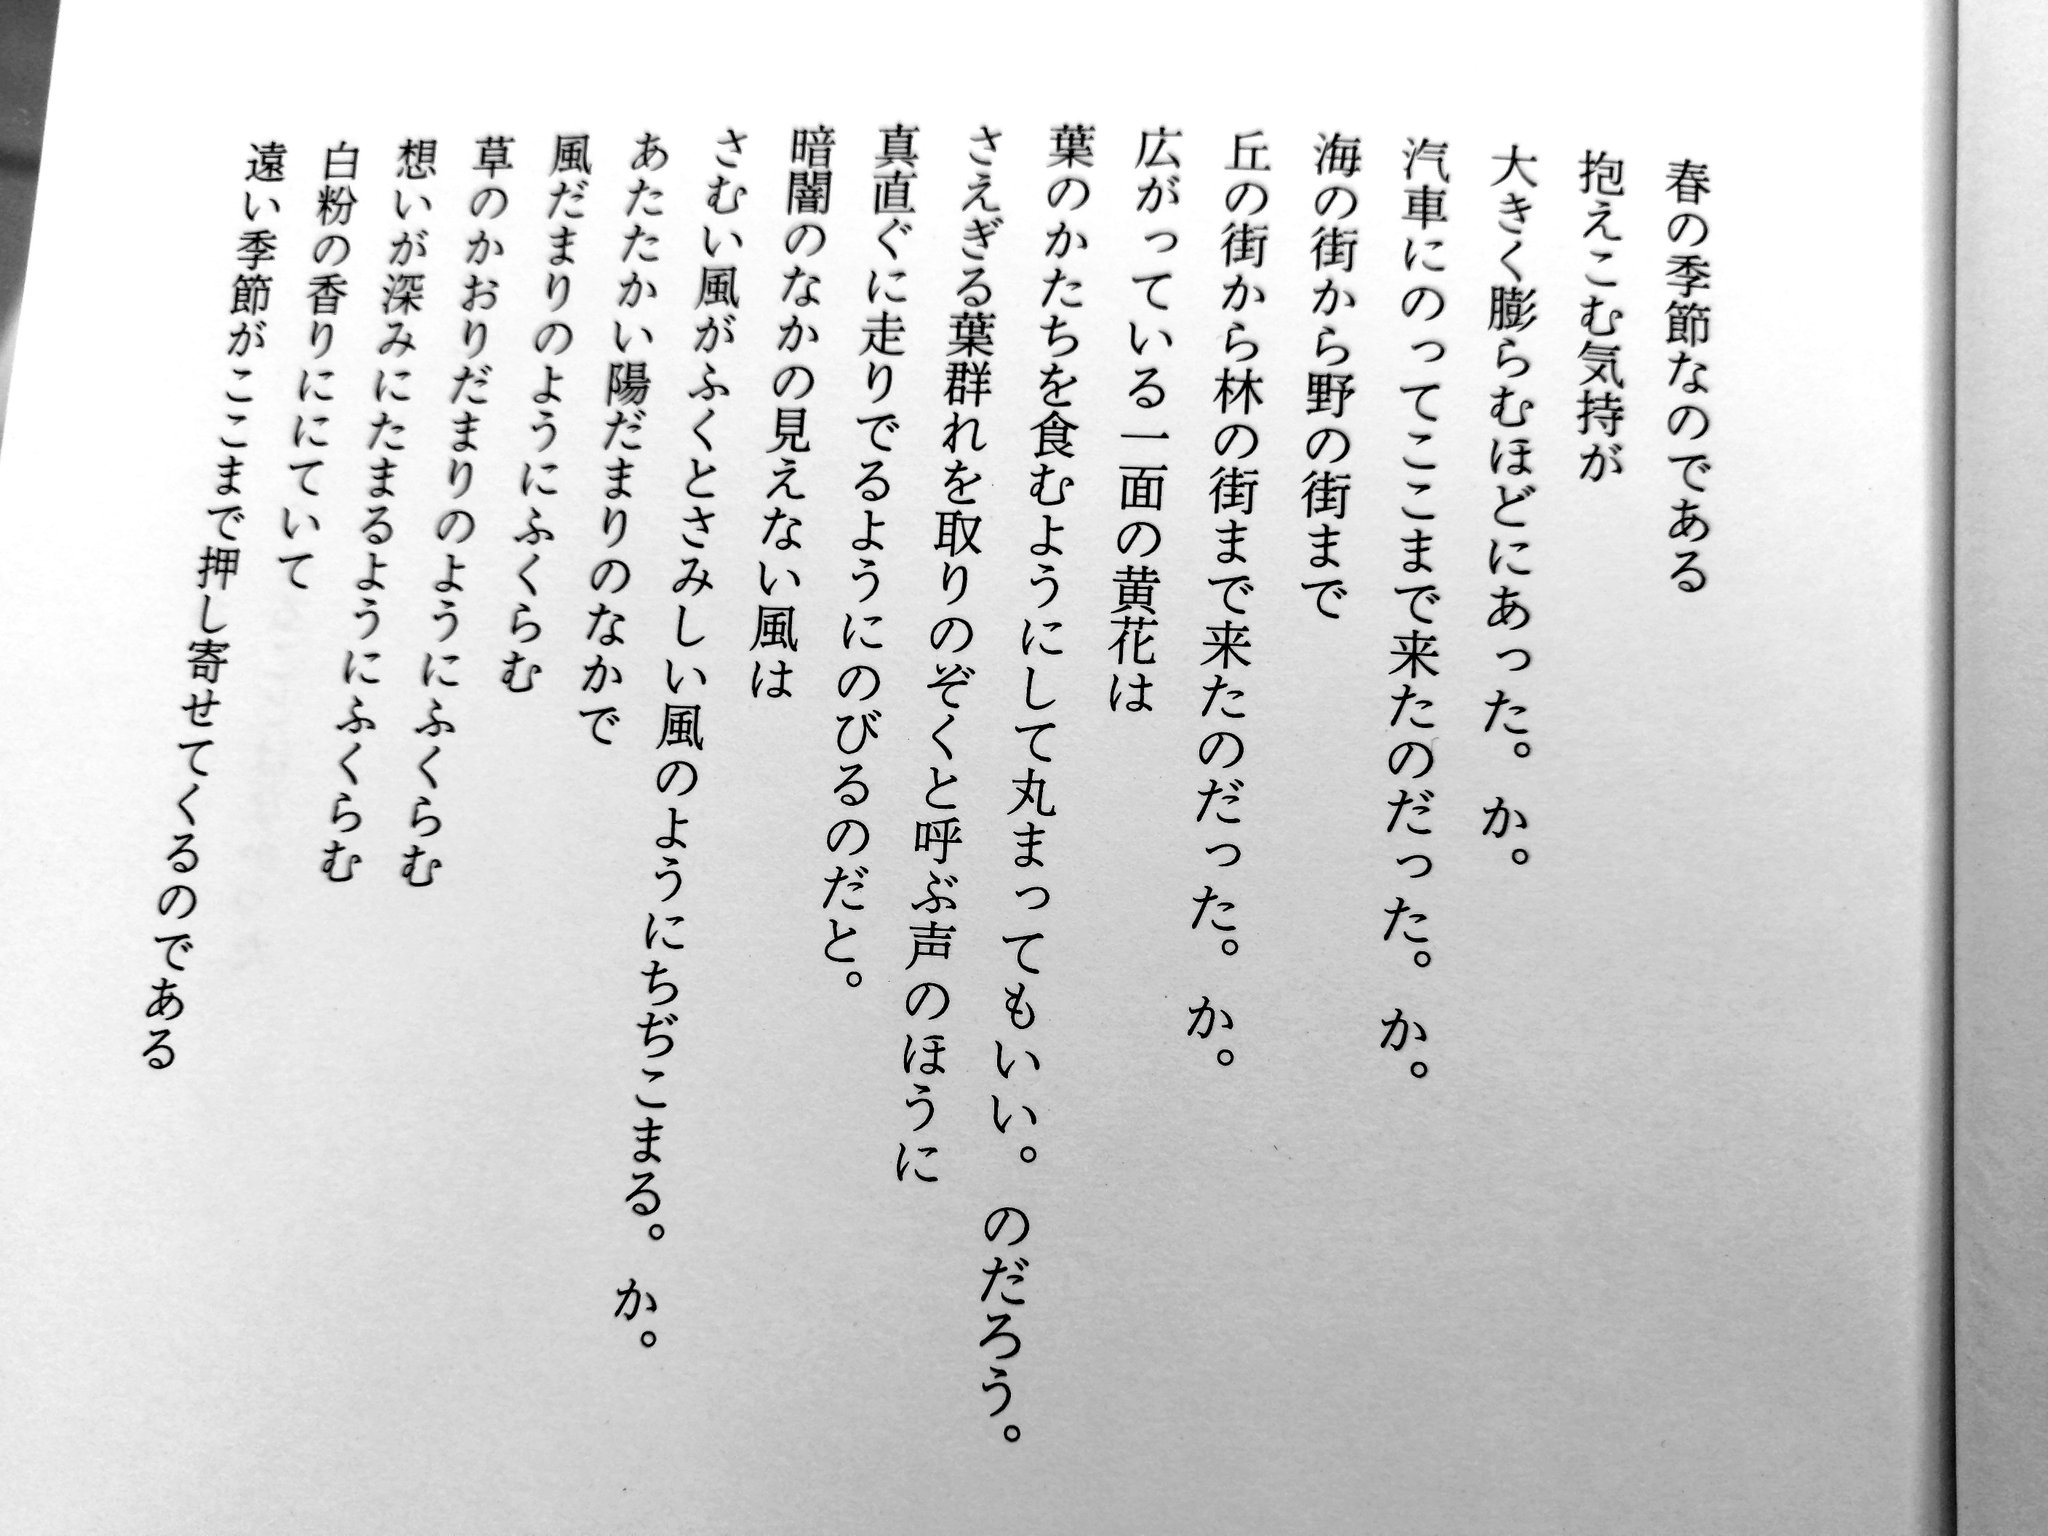 春の季節なのである
抱えこむ気持が
大きく膨らむほどにあった。か。
汽車にのってここまで来たのだった。か。
海の街から野の街まで
丘の街から林の街まで来たのだった。か。
広がっている一面の黄花は
葉のかたちを食むようにして丸まってもいい。のだろう。
さえぎる葉群れを取りのぞくと呼ぶ声のほうに
真直ぐに走りでるようにのびるのだと。
暗闇のなかの見えない風は
さむい風がふくとさみしい風のようにちぢこまる。か。
あたたかい陽だまりのなかで
風だまりのようにふくらむ
草のかおりだまりのようにふくらむ
想いが深みにたまるようにふくらむ
白粉の香りににていて
遠い季節がここまで押し寄せてくるのである